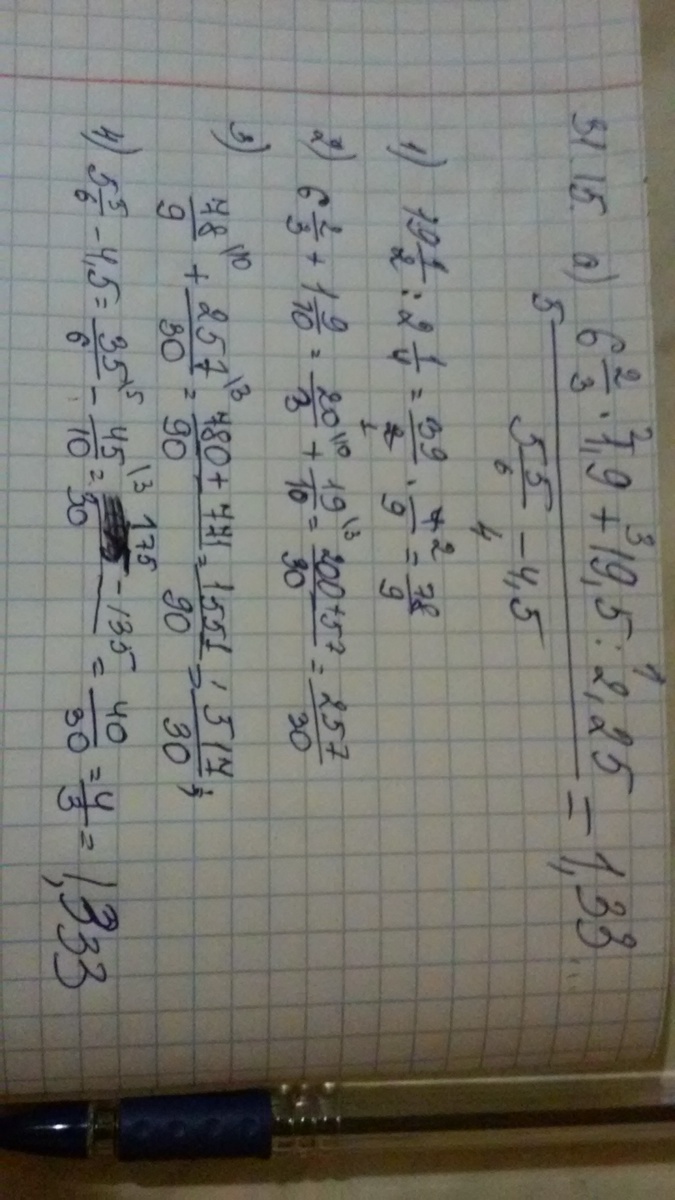 31.15. а) 6 2/3 · 1,9 + 19,5 : 2,25
5 5/6 − 4,5 = 1,33...
2 3 1
5 4
1) 19 1/2 : 2 1/4 = 39/2 · 4/9 = 78/9
1 2
2) 6 2/3 + 1 9/10 = 20\10/3 + 19\3/10 = 200+57/30 = 257/30
3) 78\10/9 + 257\3/30 = 780+771/90 = 1551/90 = 517/30;
4) 5 5/6 − 4,5 = 35\5/6 − 45\3/10 = 175 − 135/30 = 40/30 = 4/3 = 1,333